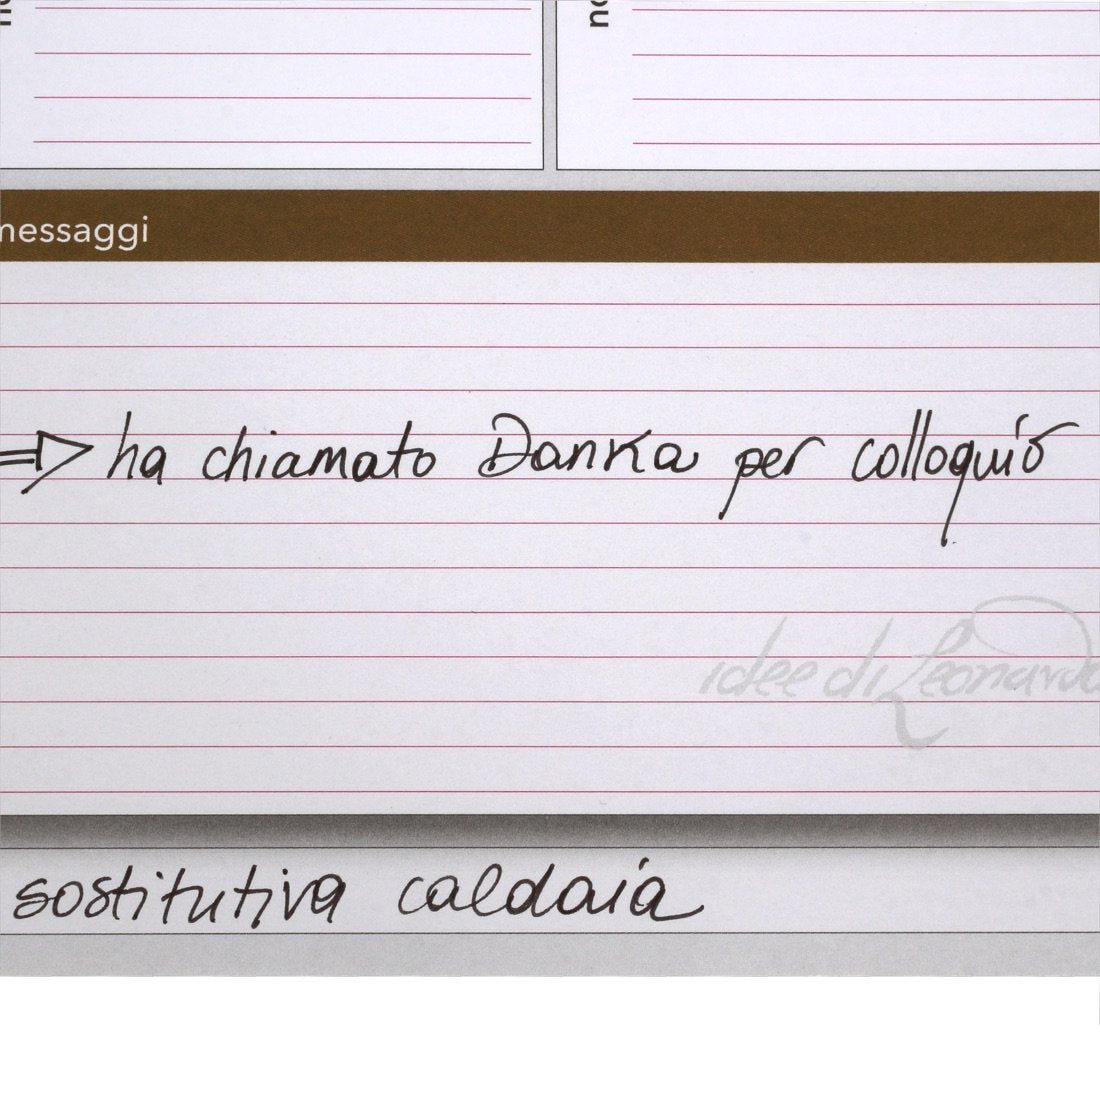 messaggi
⇒ ha chiamato Danka per colloquio
idee di Leonardo
sostitutiva caldaia